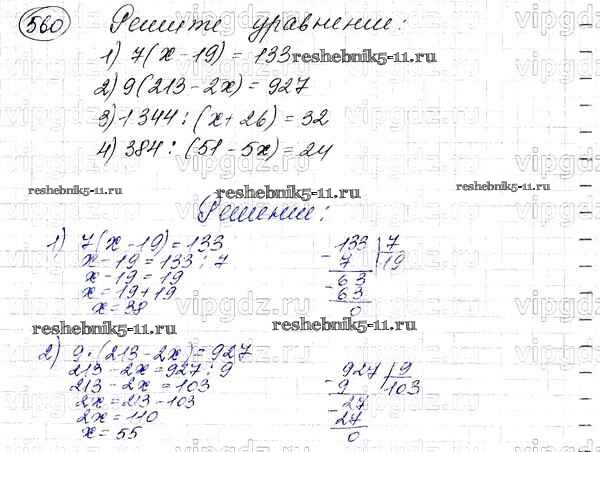 560 Решите уравнение:
1) 7(x - 19) = 133
reshebnik5-11.ru
2) 9(213 - 2x) = 927
3) 1344 : (x + 26) = 32
4) 384 : (51 - 5x) = 24
reshebnik5-11.ru reshebnik5-11.ru reshebnik5-11.ru
Решение:
1) 7(x - 19) = 133
x - 19 = 133 : 7
x - 19 = 19
x = 19 + 19
x = 38
133 7
- 7 19
63
- 63
0
reshebnik5-11.ru reshebnik5-11.ru
2) 9·(213 - 2x) = 927
213 - 2x = 927 : 9
213 - 2x = 103
2x = 213 - 103
2x = 110
x = 55
927 9
- 9 103
27
- 27
0
vipgdz.ru